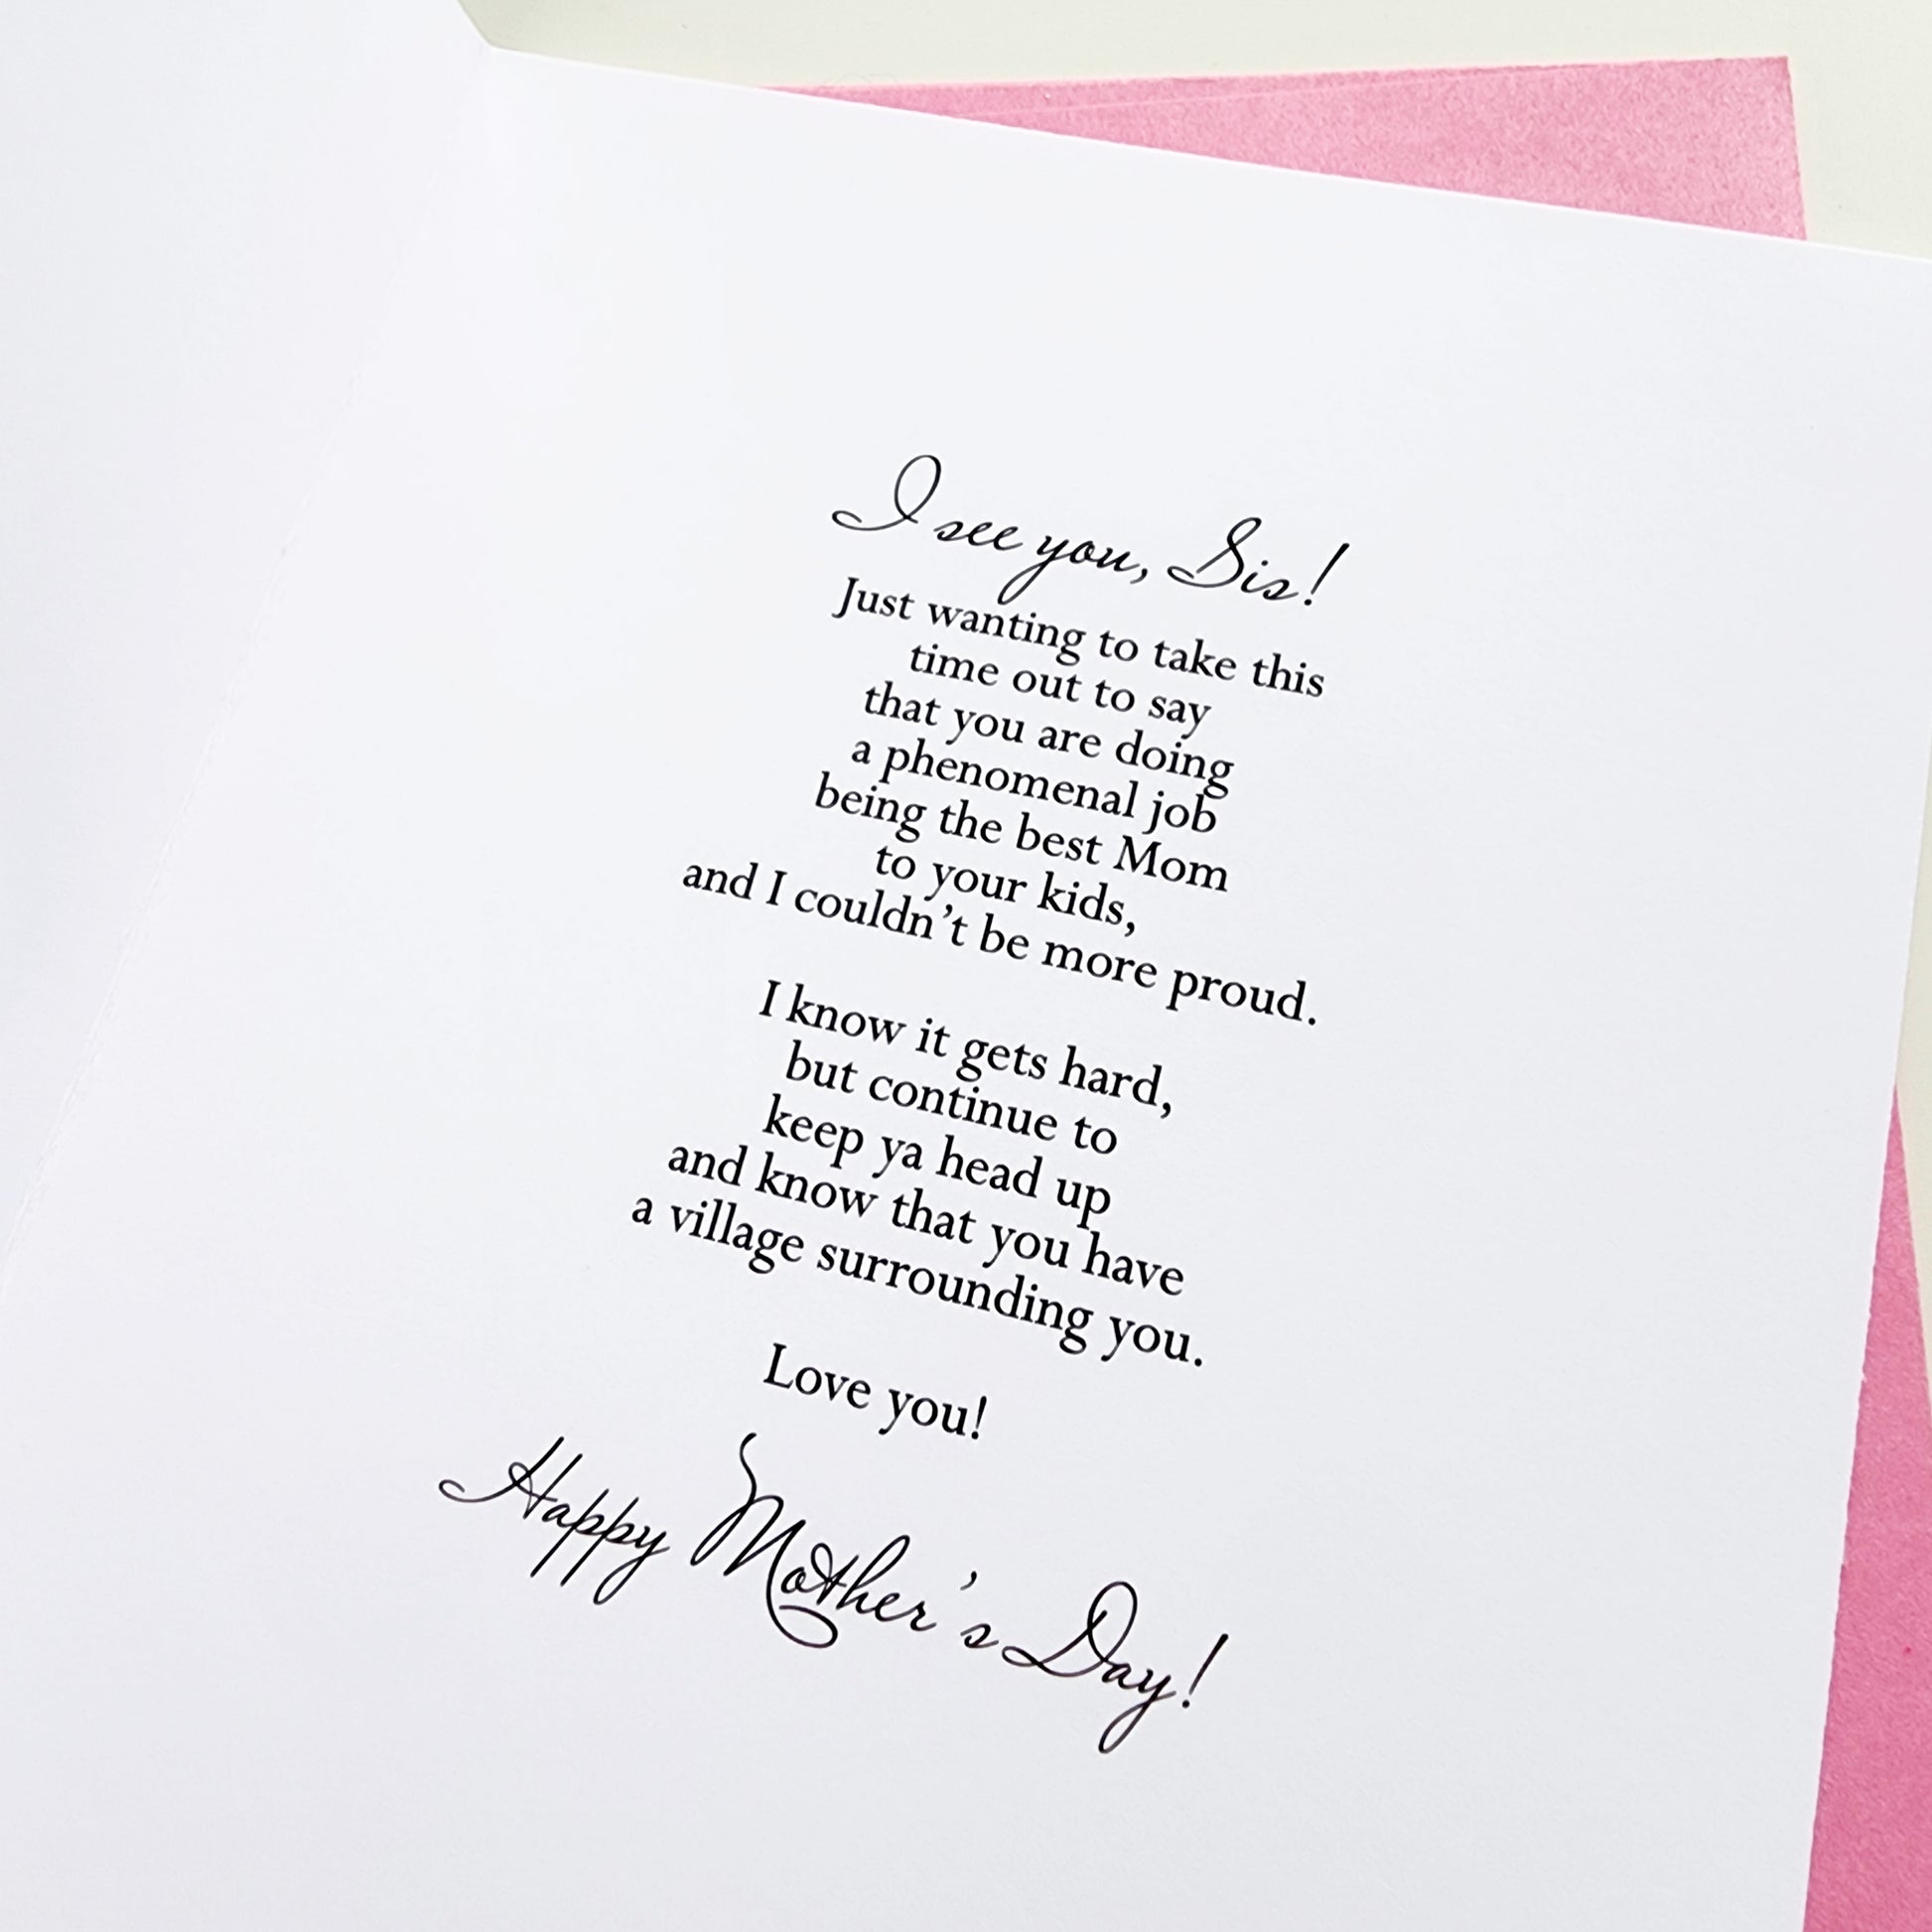 I see you, Sis!
Just wanting to take this
time out to say
that you are doing
a phenomenal job
being the best Mom
to your kids,
and I couldn’t be more proud.
I know it gets hard,
but continue to
keep ya head up
and know that you have
a village surrounding you.
Love you!
Happy Mother’s Day!